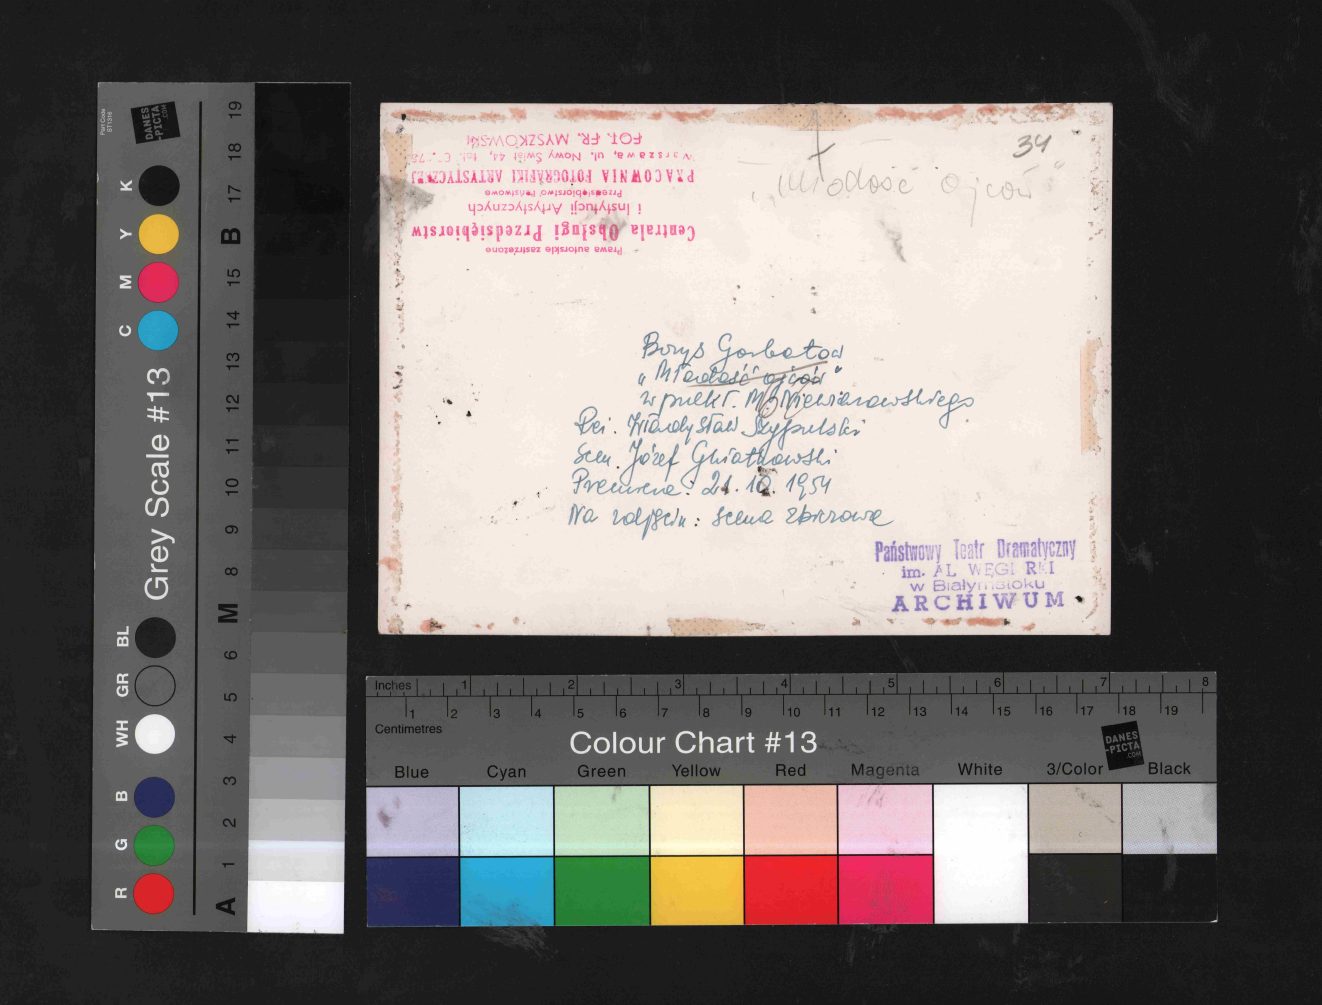 Part Code
ST1316
DANES
-PICTA
.COM
Grey Scale #13
K
Y
M
C
BL
GR
WH
B
G
R
19
18
17
B
15
14
13
12
11
10
9
8
M
6
5
4
3
2
1
A
34
"Młodość ojców"
Prawa autorskie zastrzeżone
Centrala Obsługi Przedsiębiorstw
i Instytucji Artystycznych
Przedsiębiorstwo Państwowe
PRACOWNIA FOTOGRAFIKI ARTYSTYCZNEJ
Warszawa, ul. Nowy Świat 44, tel.
FOT. FR. MYSZKOWSKI
Borys Gorbatow
„Młodość ojców"
w przekł.
Reż. Władysław Szypulski
Scen. Józef Gwiatkowski
Premiera: 21.10.1954
Na zdjęciu: scena zbiorowa
Państwowy Teatr Dramatyczny
im. AL WĘGIERKI
w Białymstoku
ARCHIWUM
Inches 1 2 3 4 5 6 7 8
1 2 3 4 5 6 7 8 9 10 11 12 13 14 15 16 17 18 19
Centimetres
Colour Chart #13
DANES
-PICTA
.COM
Blue Cyan Green Yellow Red Magenta White 3/Color Black